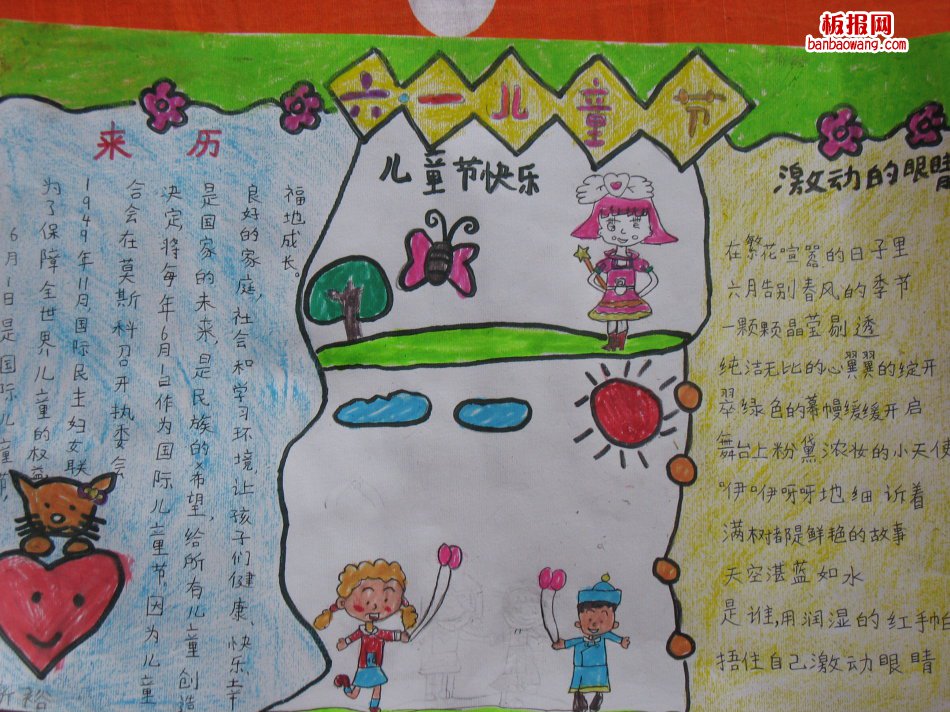 板报网
banbaowang.com
六·一儿童节
儿童节快乐
来历
6月1日是国际儿童节,
为了保障全世界儿童的权益
1949年11月国际民主妇女联
合会在莫斯科召开执委会
决定将每年6月1日作为国际儿童节,因为儿童
是国家的未来,是民族的希望,给所有儿童创造
良好的家庭,社会和学习环境,让孩子们健康、快乐、幸
福地成长。
激动的眼睛
在繁花喧嚣的日子里
六月告别春风的季节
一颗颗晶莹剔透
纯洁无比的心翼翼的绽开
翠绿色的幕幔缓缓开启
舞台上粉黛浓妆的小天使
咿咿呀呀地细诉着
满树都是鲜艳的故事
天空湛蓝如水
是谁,用润湿的红手帕
捂住自己激动眼睛